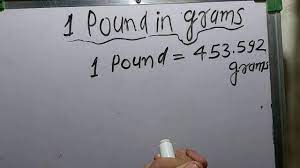 1 Pound in grams
1 Pound = 453.592
grams